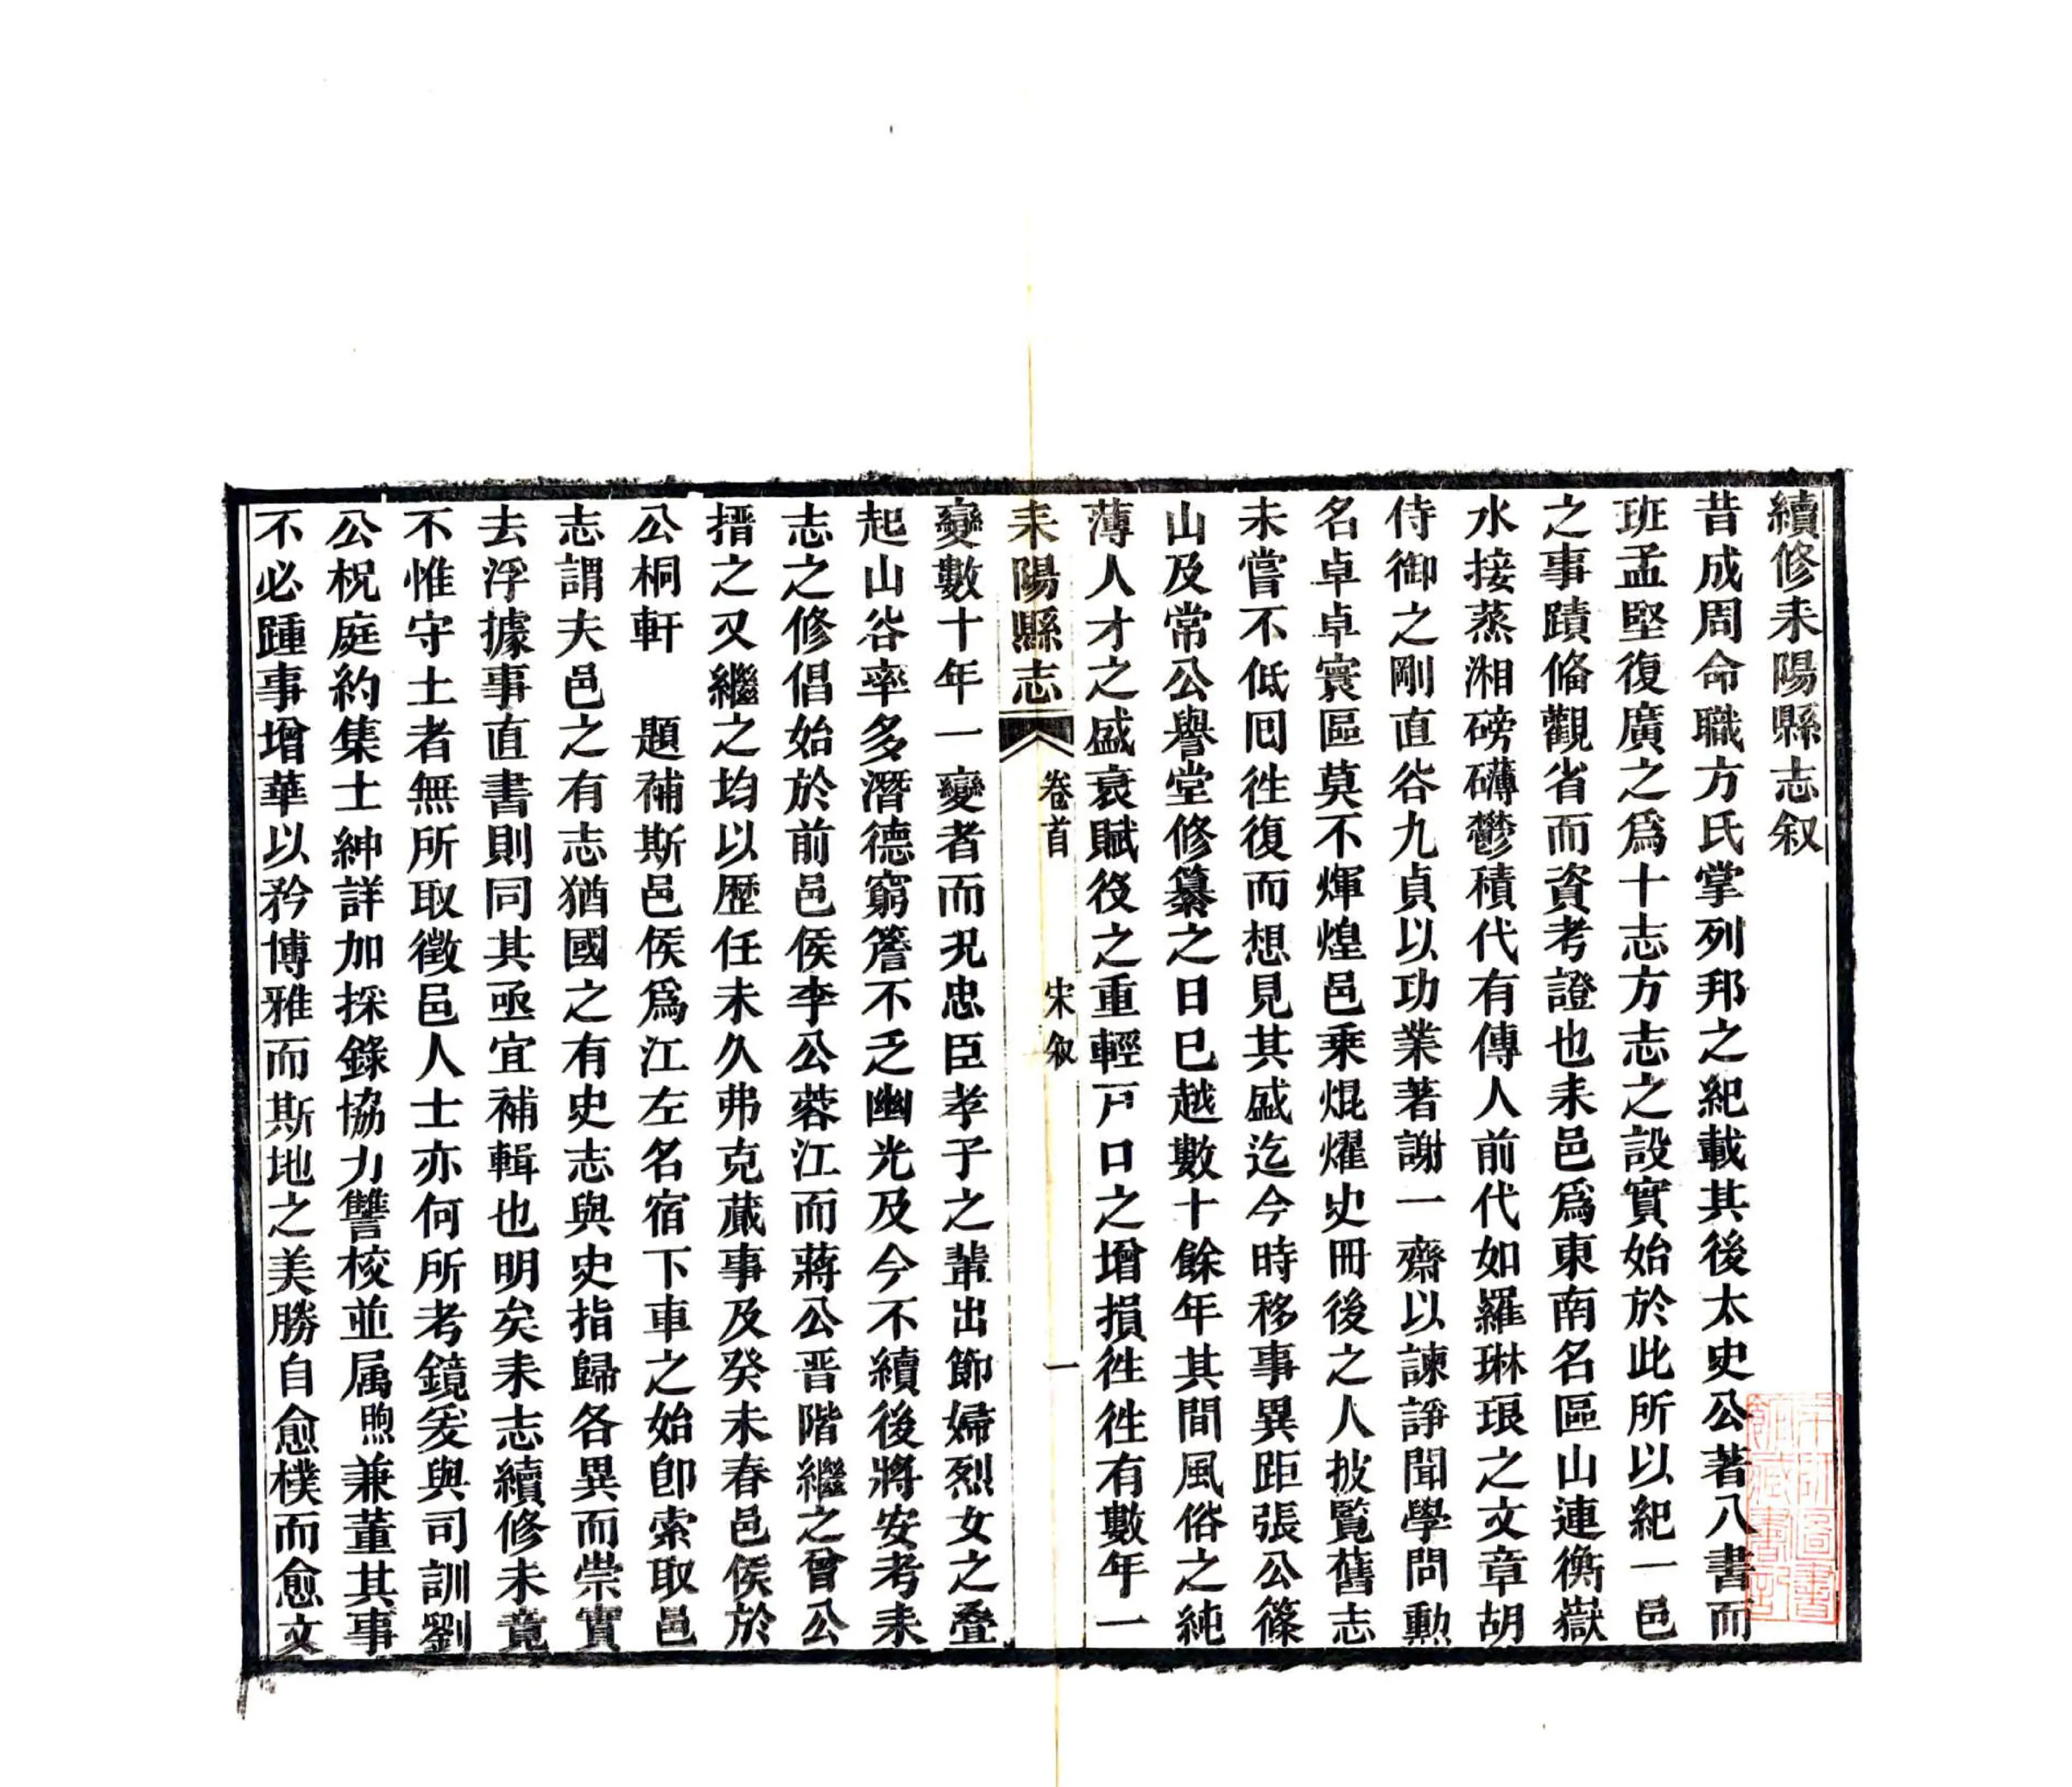 續修耒陽縣志叙
昔成周命職方氏掌列邦之紀載其後太史公著八書而
班孟堅復廣之爲十志方志之設實始於此所以紀一邑
之事蹟俻觀省而資考證也耒邑爲東南名區山連衡嶽
水接蒸湘磅礴鬱積代有傳人前代如羅琳琅之文章胡
侍御之剛直谷九貞以功業著謝一齋以諫諍聞學問勳
名卓卓寰區莫不煇煌邑乘焜燿史冊後之人披覽舊志
未嘗不低囘徃復而想見其盛迄今時移事異距張公篠
山及常公譽堂修纂之日已越數十餘年其間風俗之純
薄人才之盛衰賦役之重輕戸口之增損徃徃有數年一
耒陽縣志 卷首 宋叙 一
變數十年一變者而况忠臣孝子之輩出節婦烈女之叠
起山谷率多潛德窮簷不乏幽光及今不續後將安考耒
志之修倡始於前邑侯李公蓉江而蔣公晋階繼之曾公
搢之又繼之均以歷任未久弗克蕆事及癸未春邑侯於
公桐軒 題補斯邑侯爲江左名宿下車之始卽索取邑
志謂夫邑之有志猶國之有史志與史指歸各異而崇實
去浮據事直書則同其亟宜補輯也明矣耒志續修未竟
不惟守土者無所取徵邑人士亦何所考鏡爰與司訓劉
公柷庭約集士紳詳加採錄協力讐校並属煦兼董其事
不必踵事增華以矜博雅而斯地之美勝自愈樸而愈文